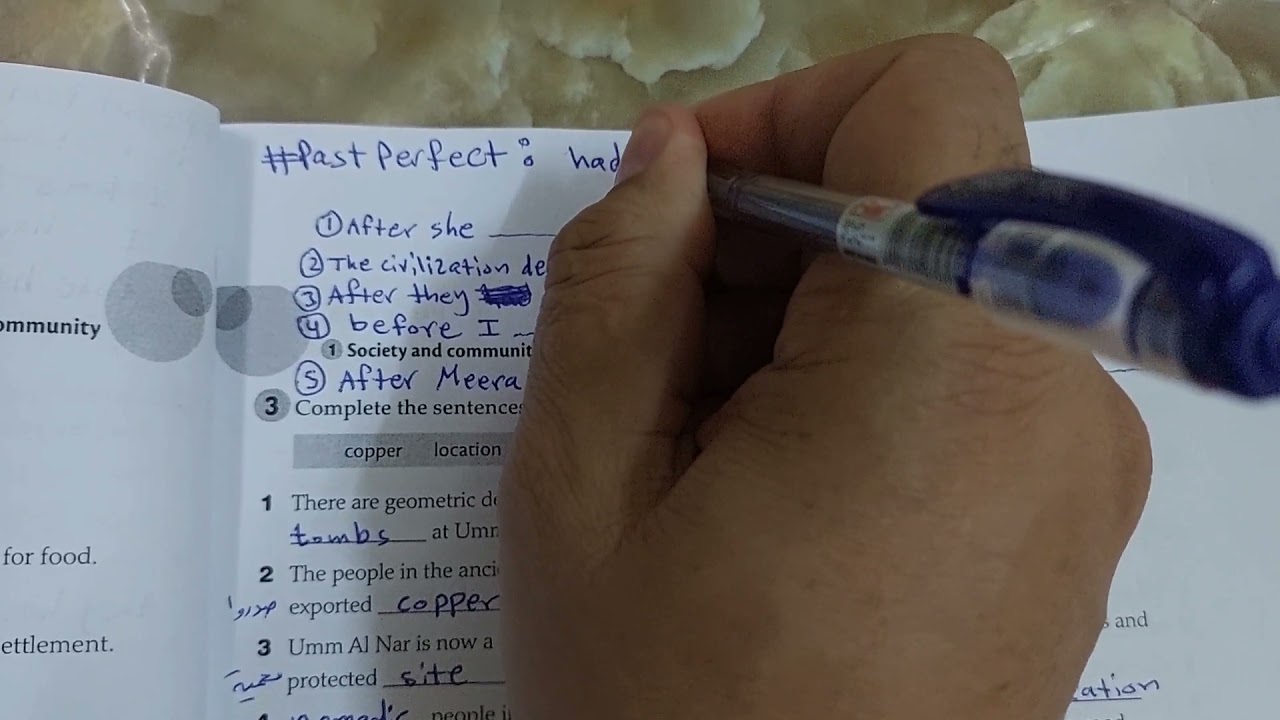 #Past Perfect: had
① After she ____
② The civilization de
③ After they
④ before I
ommunity
1 Society and communit
⑤ After Meera
3 Complete the sentences
copper location
1 There are geometric de
tombs at Umm
for food.
2 The people in the anci
صدروا exported copper
s and
ettlement.
3 Umm Al Nar is now a
protected site
ation
people i